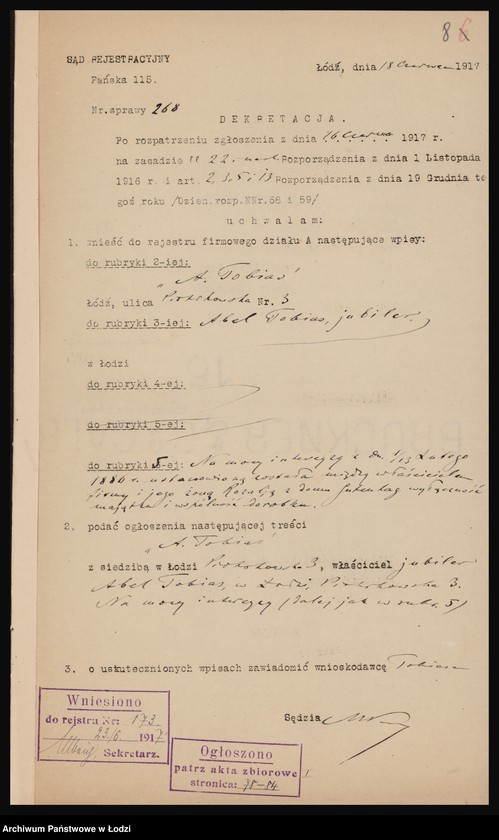 8 6
SĄD REJESTRACYJNY
Łódź, dnia 18 Czerwca 1917
Pańska 115.
Nr. sprawy 268
DEKRETACJA.
Po rozpatrzeniu zgłoszenia z dnia 16 Czerwca 1917 r.
na zasadzie 22 Rozporządzenia z dnia 1 Listopada
1916 r. i art. 2, 3, 5 i 13 Rozporządzenia z dnia 19 Grudnia te
goś roku /Dzien. rozp. NNr. 58 i 59/
uchwalam:
1. wnieść do rejestru firmowego działu A następujące wpisy:
do rubryki 2-iej:
„A. Tobias"
Łódź, ulica Piotrkowska Nr. 3
do rubryki 3-iej: Abel Tobias, jubiler.
z Łodzi
do rubryki 4-ej:
do rubryki 5-ej:
do rubryki 5-ej: Na mocy intercyzy z dn. 1/13 Lutego
1886 r. ustanowioną została między właścicielem
firmy i jego żoną Rozalją z domu Gutentag wyłączność
majątku i wspólność dorobku.
2. podać ogłoszenia następującej treści
„A. Tobias"
z siedzibą w Łodzi Piotrkowska 3, właściciel jubiler
Abel Tobias, w Łodzi, Piotrkowska 3.
Na mocy intercyzy (dalej jak w rubr. 5)
3. o uskutecznionych wpisach zawiadomić wnioskodawcę Tobiasa
Sędzia
Wniesiono
do rejstra Nr: 173
23/6 1917
Sekretarz.
Ogłoszono
patrz akta zbiorowe
stronica: 78-84
Archiwum Państwowe w Łodzi